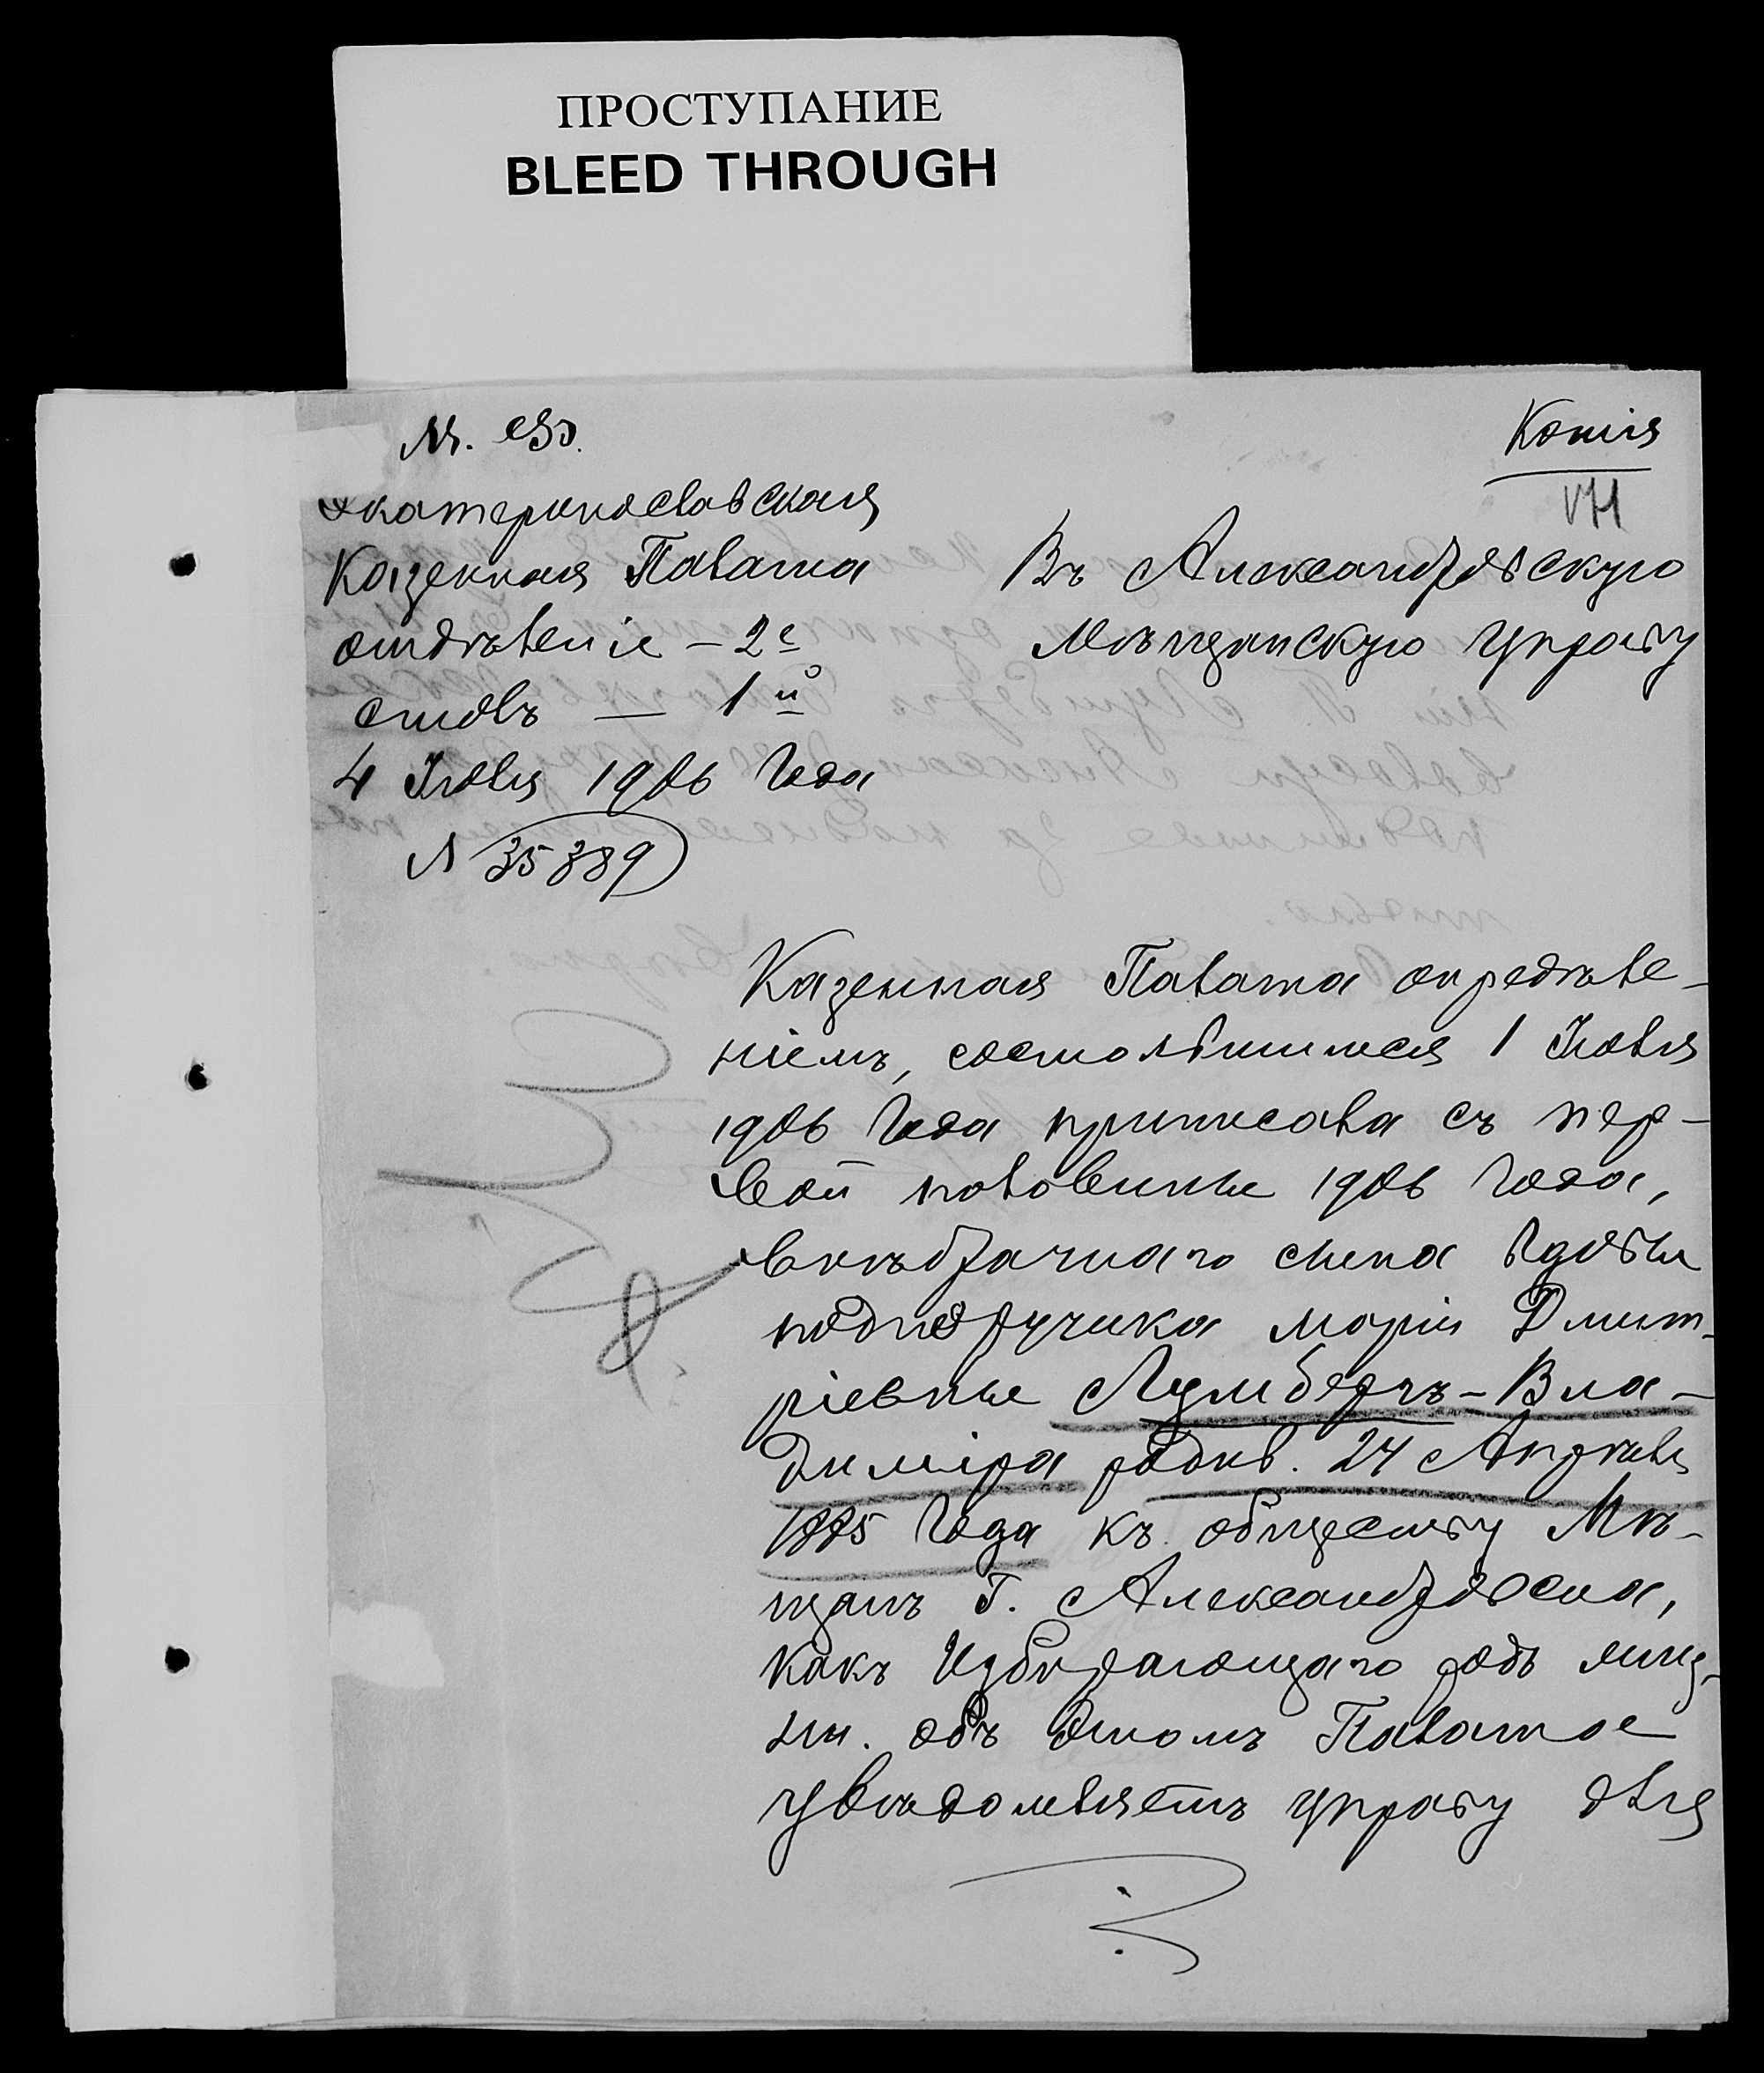 ПРОСТУПАНИЕ
BLEED THROUGH
Копія
М. Ф.
Екатеринославская
Казенная Палата
отдѣленіе – 2е
столъ — 1й
4 Іюля 1906 года
N 35389
Въ Александровскую
Мѣщанскую Управу
Казенная Палата опредѣле-
ніемъ, состоявшимся 1 Іюля
1906 года приписала съ пер-
вой половины 1906 года,
внѣбрачнаго сына вдовы
подпоручика Маріи Дмит-
ріевны Лумбергъ – Вла-
диміра родив. 24 Апрѣля
1885 года къ обществу Мѣ-
щанъ г. Александровска,
какъ избирающаго родъ жиз-
ни. Объ этомъ Палата
увѣдомляетъ управу для